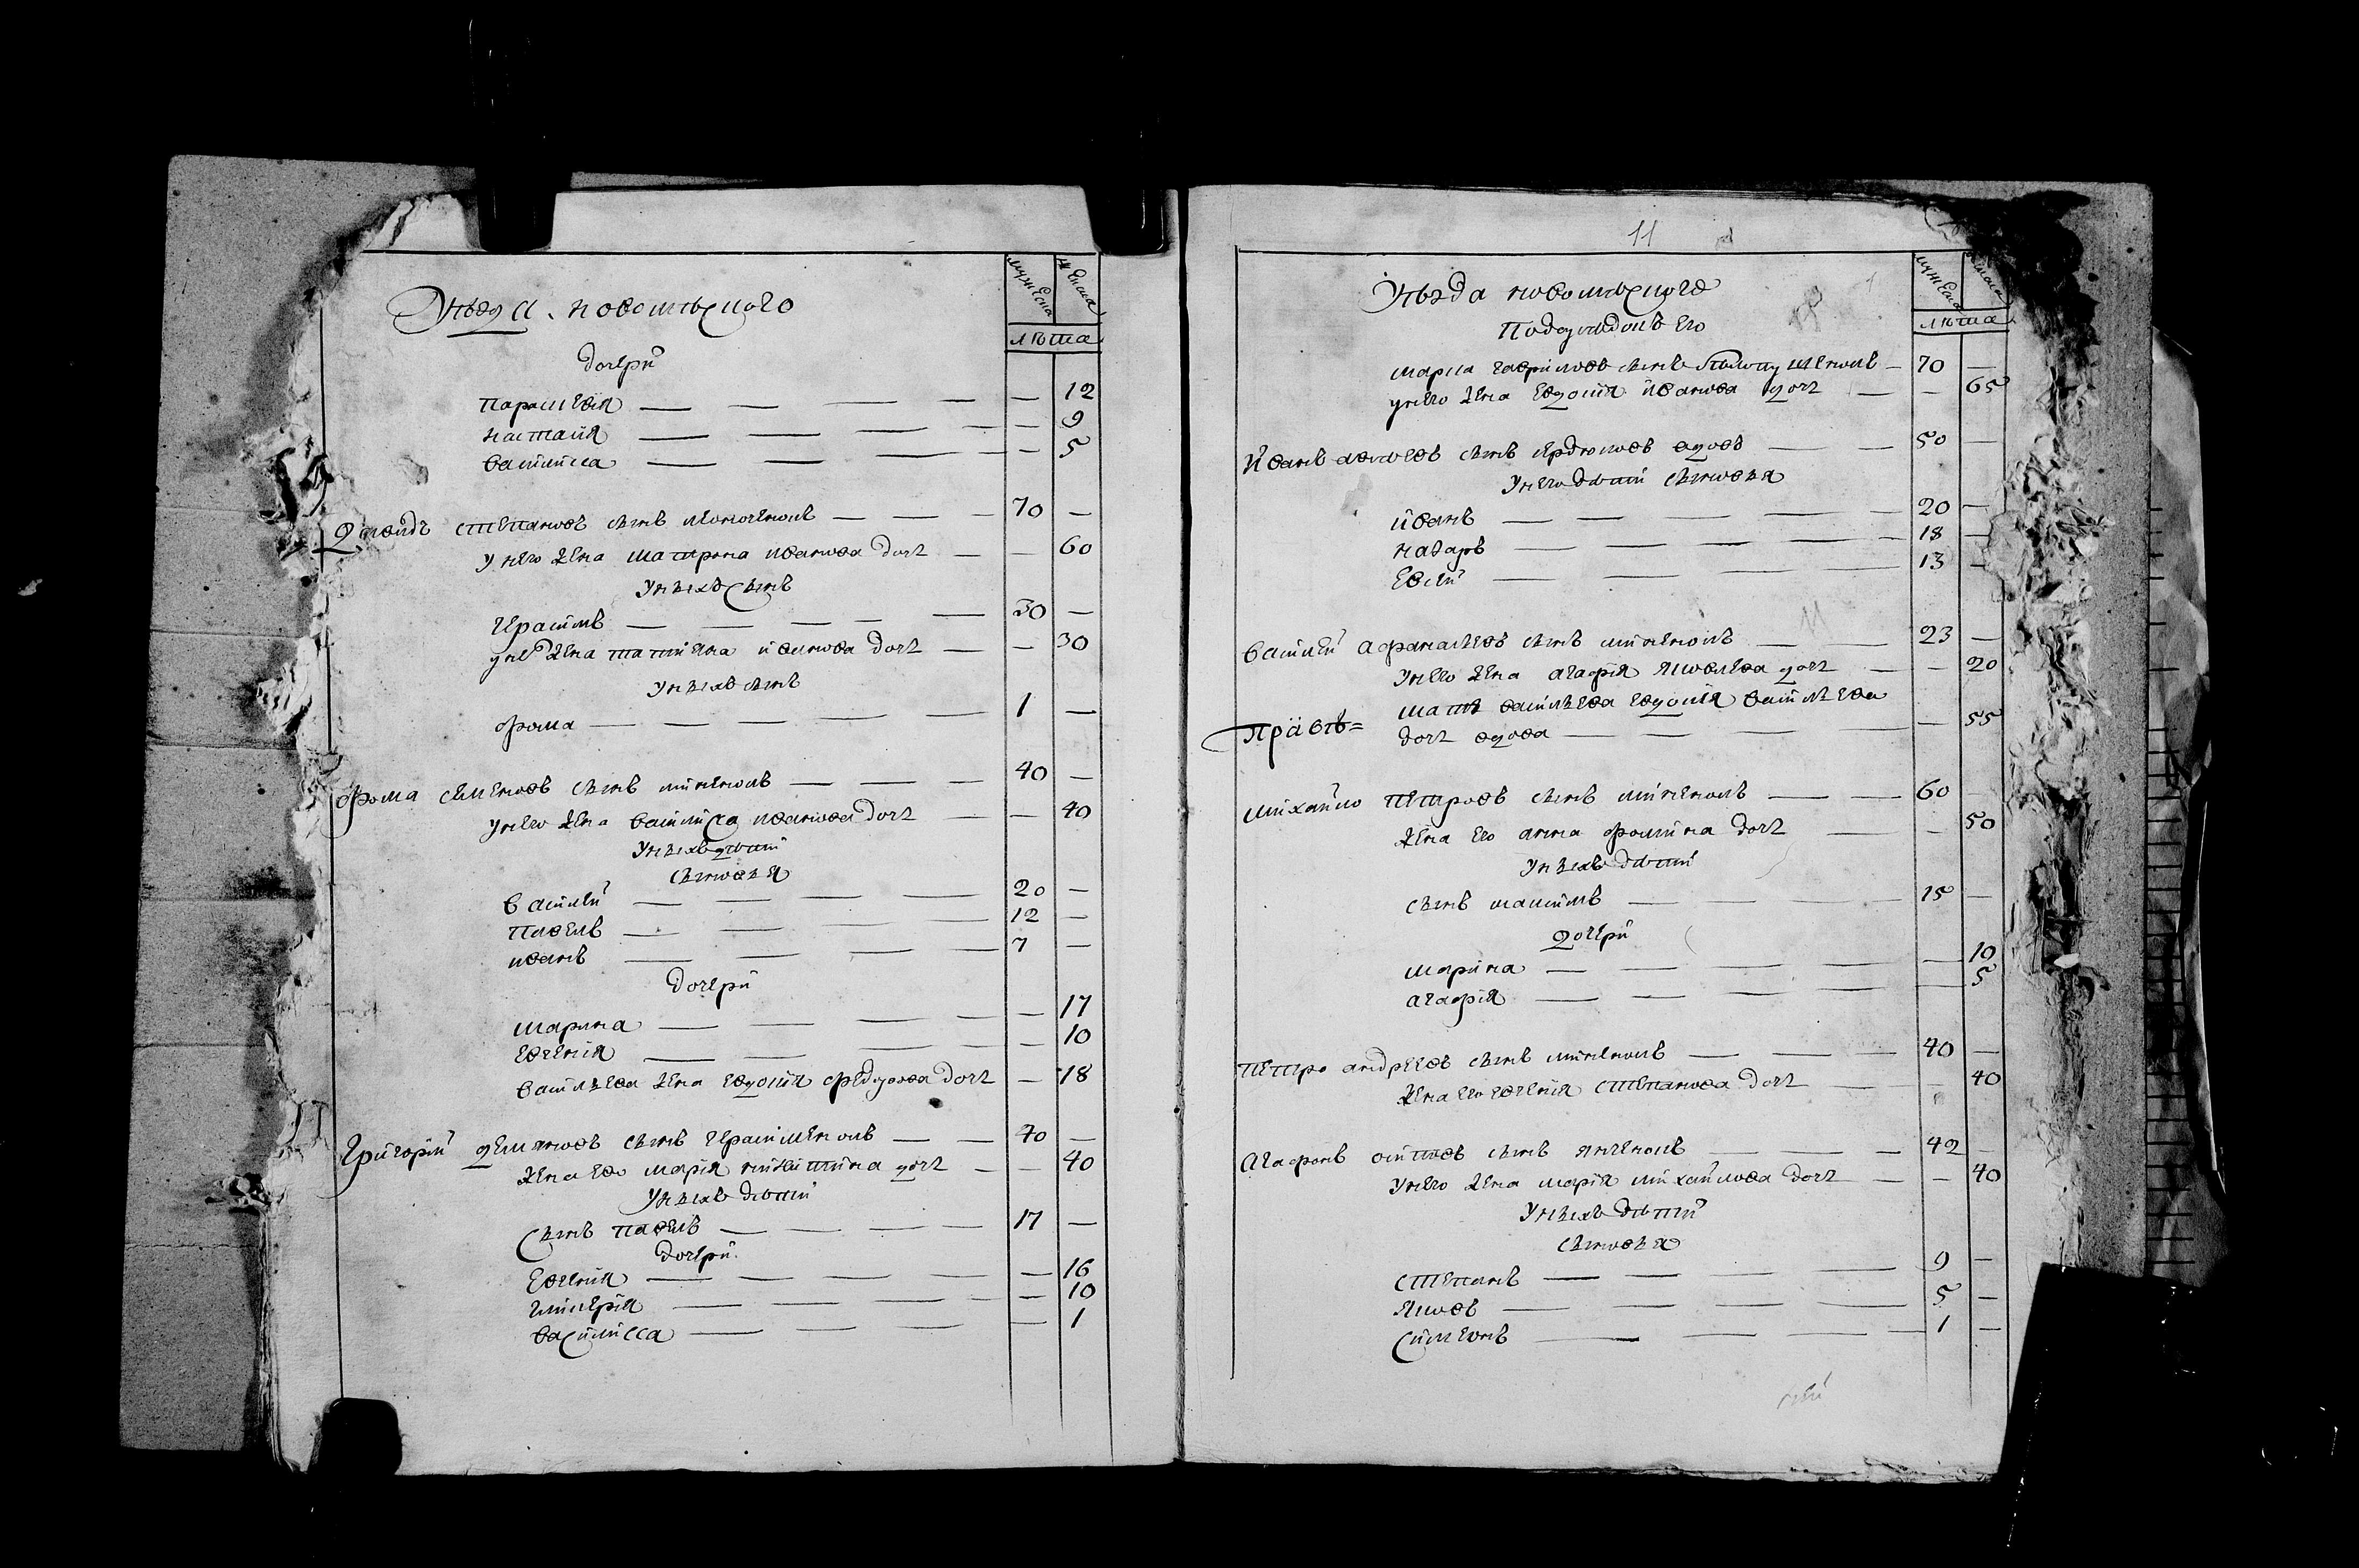 мужеска
женска
Уезда новомѣского
лѣта
дочери
параскевія — 12
настасия — 9
василиса — 5
Давидъ степановъ сынъ кононенокъ 70 —
у него жена матрона иванова дочь — 60
У ныхъ сынъ
герасимъ 30 —
у него жена татияна иванова дочь — 30
У ныхъ сынъ
фома 1 —
фома семеновъ сынъ миненокъ 40 —
у него жена василисса иванова дочь — 40
У ныхъ дѣти
сыновья
василей 20 —
павелъ 12 —
иванъ 7 —
дочери
марина — 17
евгения — 10
васильева жена евдокия федорова дочь — 18
григорий демяновъ сынъ герасименокъ 40 —
жена его мария никитина дочь — 40
У ныхъ дѣти
сынъ павелъ 17 —
дочери
евгения — 16
гликерия — 10
василисса — 1
11
мужеска
женска
Уѣзда новомѣского
лѣта
Подсуседокъ его
марка гавриловъ сынъ 70 —
у него жена евдокия иванова дочь — 65
Иванъ сынъ вдовъ 50 —
У него дѣти сыновья
иванъ 20 —
назаръ 18 —
евсей 13 —
василей афанасиевъ сынъ миненокъ 23 —
У него жена агафия яковлева дочь — 20
мать васильева евдокия васильева
дочь вдова — 55
михайло петровъ сынъ миненокъ 60 —
жена его анна фомина дочь — 50
У ныхъ дѣти
сынъ максимъ 15 —
дочери
марина — 10
агафия — 5
петро андреевъ сынъ миненокъ 40 —
жена его евгения степанова дочь — 40
Агафонъ осиповъ сынъ янченокъ 42 —
У него жена мария михайлова дочь — 40
У ныхъ дѣти
сыновья
степанъ 9 —
яковъ 5 —
симеонъ 1 —